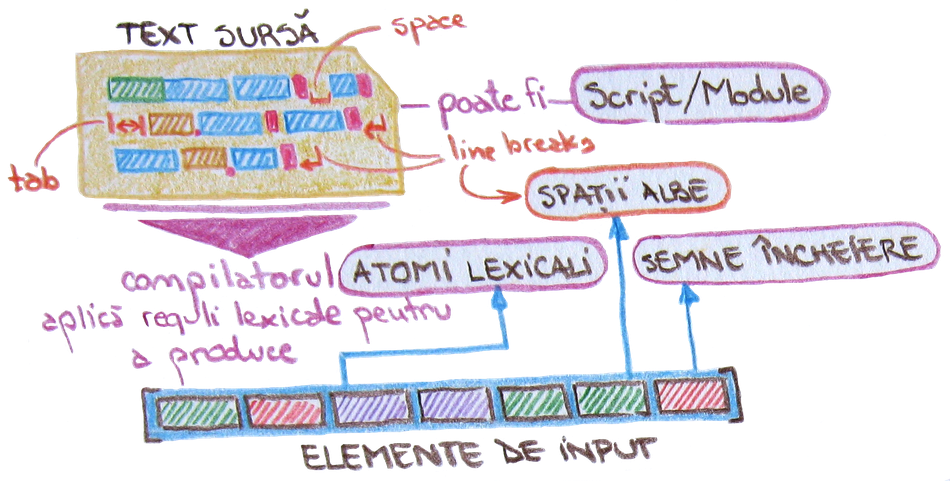 TEXT SURSĂ
space
poate fi
Script/Module
tab
line breaks
SPAȚII ALBE
compilatorul
aplică reguli lexicale pentru
a produce
ATOMI LEXICALI
SEMNE ÎNCHEIERE
ELEMENTE DE INPUT